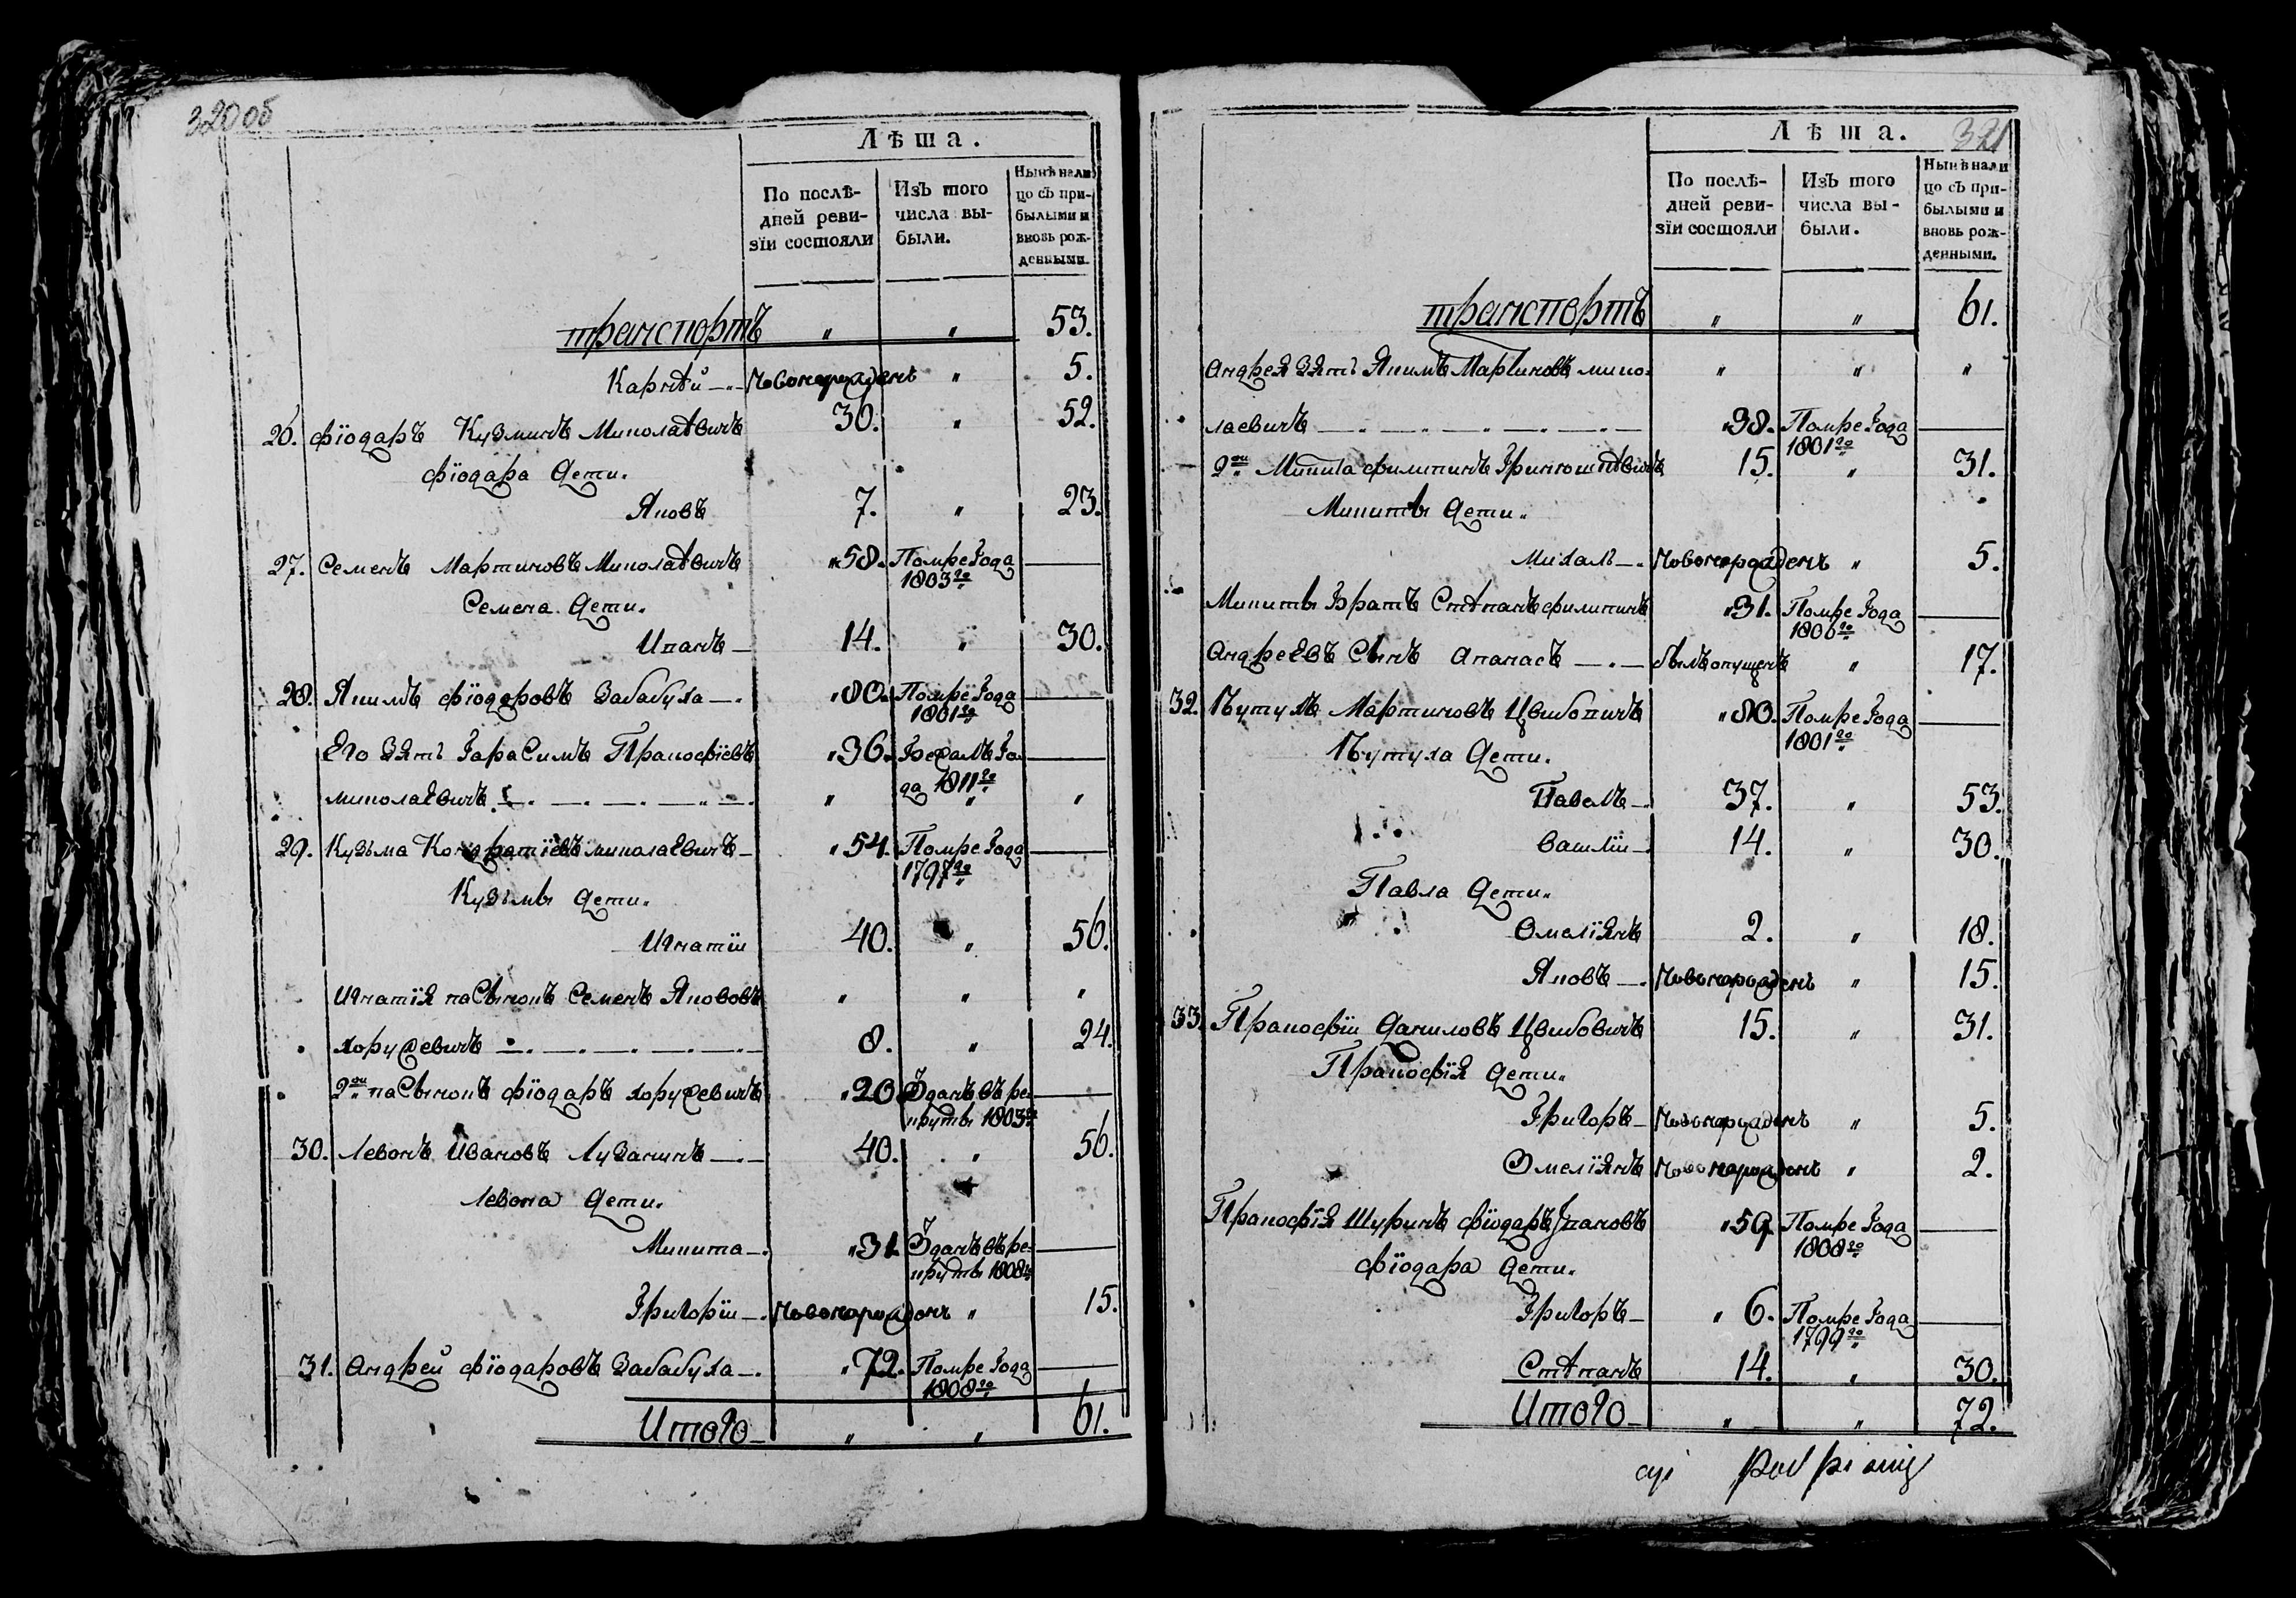 320об
Лѣта.
По послѣ-
дней реви-
зїи состояли
Изъ того
числа вы-
были.
Нынѣ нали
цо съ при-
былыми и
вновь рож-
денными.
транспортъ " " 53.
Карнѣй —.— Новонарожденъ " 5.
26. Фїодаръ Кузминъ Миколаѣвичъ 36. " 52.
Фїодара дети.
Яковъ 7. " 23.
27. Семенъ Мартиновъ Миколаѣвичъ "58. Помре Года —
1803го
Семена дети.
Ипатъ — 14. " 30.
28. Якимъ Фїодоровъ Забабуха —. "80. Помре Года —
1801го
Его Зять Гарасимъ Пракофїевъ "36. Бежалъ Го- —
миколаевичъ. —.—.—.—.— " да 1811го "
29. Кузьма Кондратїевъ миколаевичъ — "54. Помре Года —
1797го
Кузьмы дети.
Игнатїи 40. " 56.
Игнатїя пасынокъ Семенъ Яковов " " "
хоружевичъ —.—.—.—.— 8. " 24.
2ои пасынокъ Фїодаръ хоружевичъ "20 Зданъ въ ре- —
круты 1803го
30. Левонъ Ивановъ Лузанинъ —.— 40. " 56.
Левона дети.
Микита —. "31. Зданъ въ ре- —
круты 1808го
Григорїи —. Новонарожденъ " 15.
31. Андрей Фїодаровъ Забабуха —. "72. Помре Года —
1808го
Итого — " " 61.
321
Лѣта.
По послѣ-
дней реви-
зїи состояли
Изъ того
числа вы-
были.
Нынѣ нали
цо съ при-
былыми и
вновь рож-
денными.
транспортъ " " 61.
Андрея Зять Якимъ Мартиновъ мико- " " "
лаевичъ —.—.—.—.—.— "38. Помре Года —
1801го
2ои Микита филипинъ 15. " 31.
Микиты дети.
Михалъ —. Новонарожденъ " 5.
Микиты Братъ Стѣпанъ филипинъ "31. Помре Года —
1806го
Андреевъ Сынъ Апанасъ —.— былъ опущенъ " 17.
32. Мартиновъ "80. Помре Года —
1801го
дети.
Павелъ —. 37. " 53.
Василїи —. 14. " 30.
Павла дети.
Омелїянъ 2. " 18.
Яковъ —. Новонарожденъ " 15.
33. Пракофїи Даниловъ Цвибовичъ 15. " 31.
Пракофїя дети.
Григоръ — Новонарожденъ " 5.
Омелїянъ Новонарожденъ " 2.
Пракофїя Шуринъ Фїодаръ "59. Помре Года —
1808го
Фїодара дети.
Григоръ — " 6. Помре Года —
1799го
Стѣпанъ 14. " 30.
Итого — " " 72.